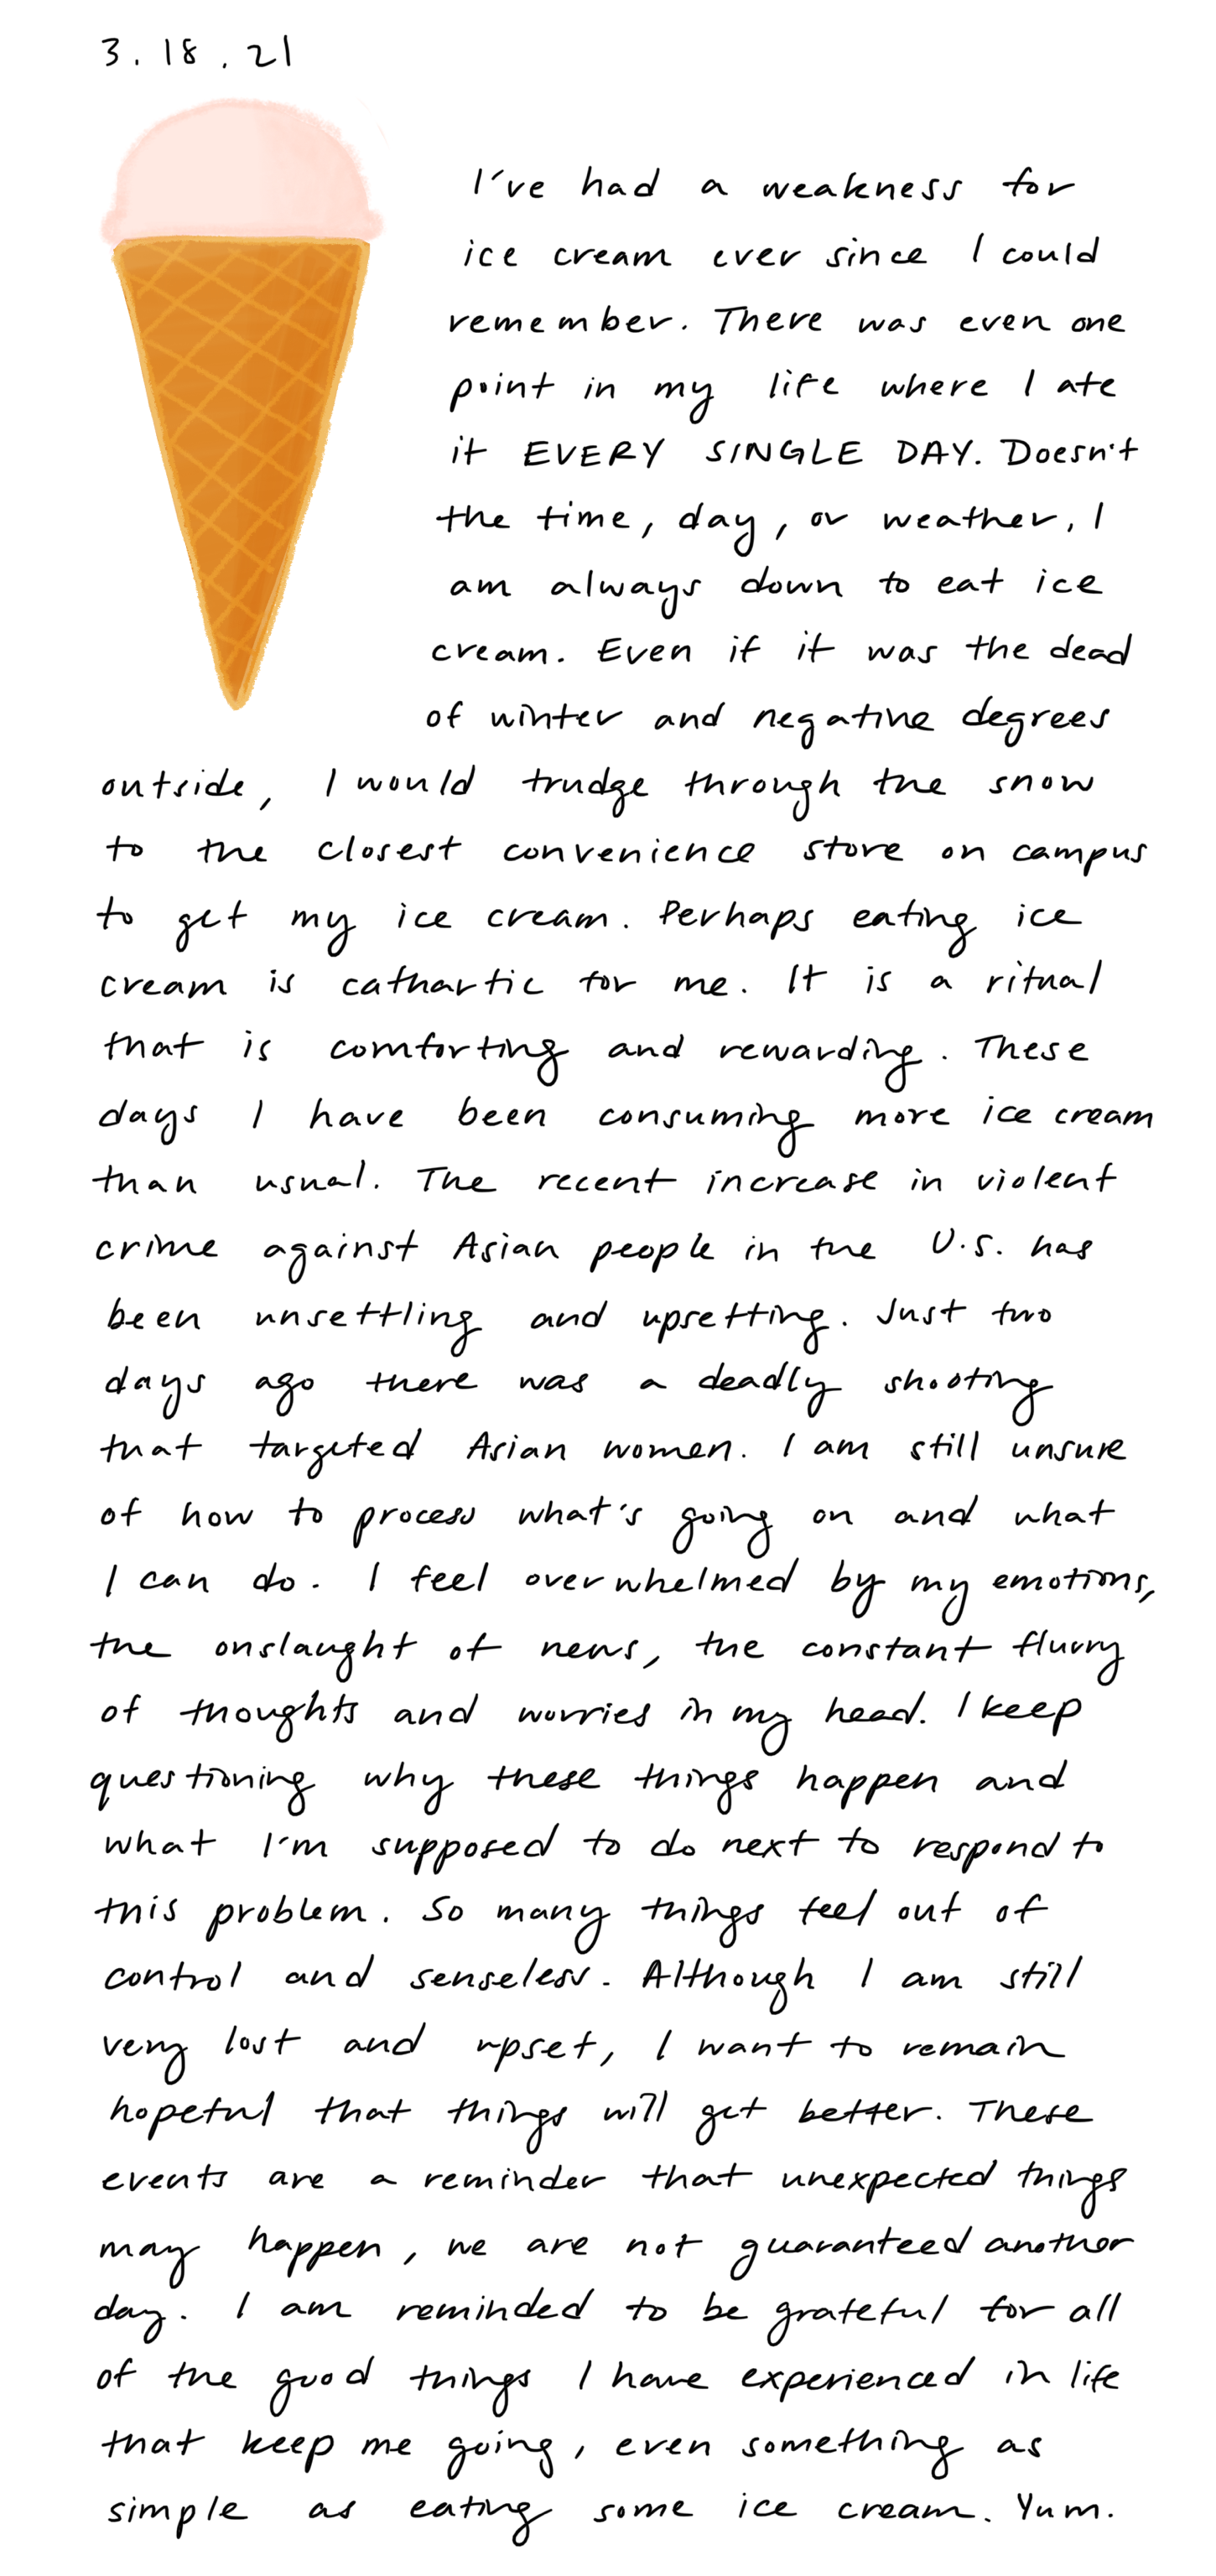 3.18.21
I've had a weakness for
ice cream ever since I could
remember. There was even one
point in my life where I ate
it EVERY SINGLE DAY. Doesn't
the time, day, or weather, I
am always down to eat ice
cream. Even if it was the dead
of winter and negative degrees
outside, I would trudge through the snow
to the closest convenience store on campus
to get my ice cream. Perhaps eating ice
cream is cathartic for me. It is a ritual
that is comforting and rewarding. These
days I have been consuming more ice cream
than usual. The recent increase in violent
crime against Asian people in the U.S. has
been unsettling and upsetting. Just two
days ago there was a deadly shooting
that targeted Asian women. I am still unsure
of how to process what's going on and what
I can do. I feel overwhelmed by my emotions,
the onslaught of news, the constant flurry
of thoughts and worries in my head. I keep
questioning why these things happen and
what I'm supposed to do next to respond to
this problem. So many things feel out of
control and senseless. Although I am still
very lost and upset, I want to remain
hopeful that things will get better. These
events are a reminder that unexpected things
may happen, we are not guaranteed another
day. I am reminded to be grateful for all
of the good things I have experienced in life
that keep me going, even something as
simple as eating some ice cream. Yum.